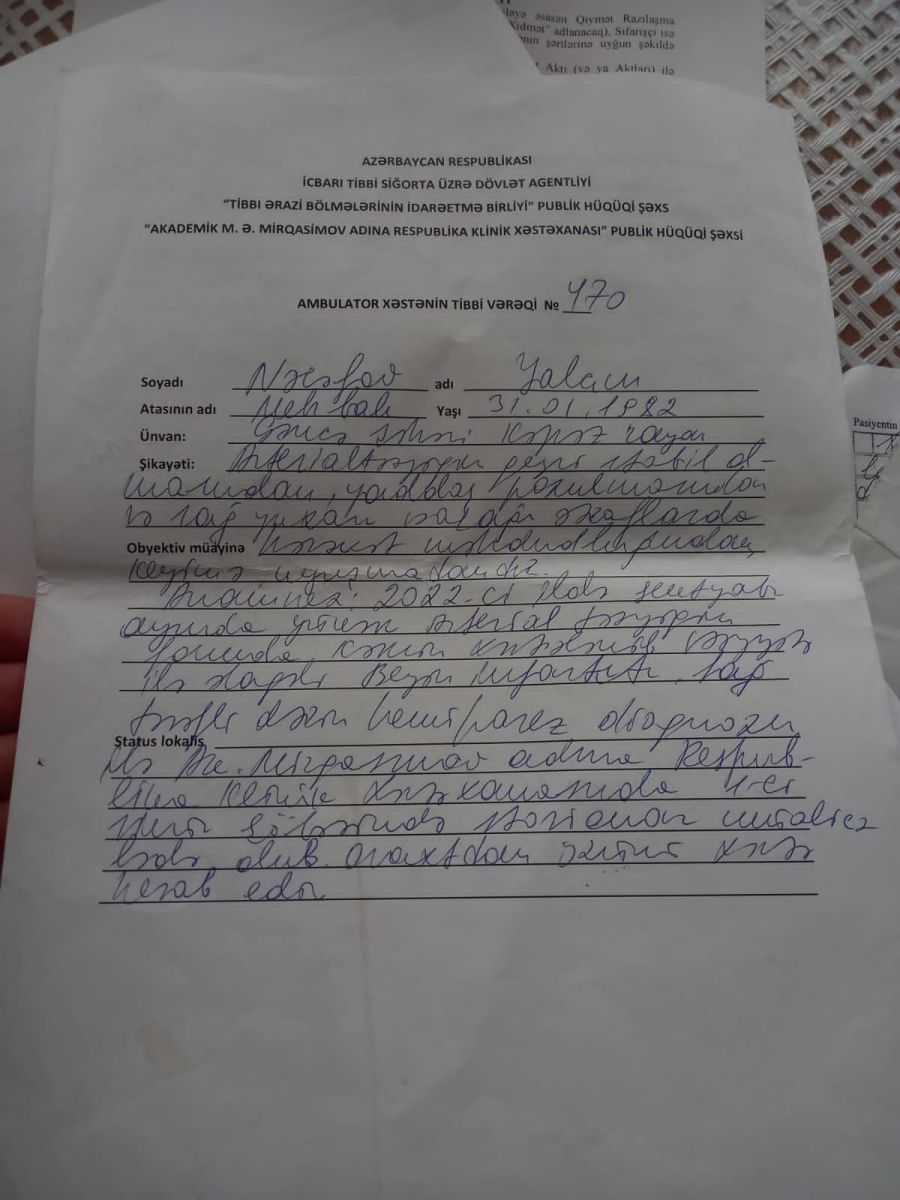 ləyə əsasən Qiymət Razılaşma
Xidmət" adlanacaq), Sifarişçi isə
şərtlərinə uyğun şəkildə
Aktı (və ya Aktları) ilə
AZƏRBAYCAN RESPUBLİKASI
İCBARI TİBBİ SİĞORTA ÜZRƏ DÖVLƏT AGENTLİYİ
"TİBBI ƏRAZİ BÖLMƏLƏRİNİN İDARƏETMƏ BİRLİYİ" PUBLİK HÜQÜQİ ŞƏXS
"AKADEMİK M. Ə. MİRQASİMOV ADINA RESPUBLİKA KLİNİK XƏSTƏXANASI" PUBLİK HÜQÜQİ ŞƏXSİ
AMBULATOR XƏSTƏNİN TİBBİ VƏRƏQİ № 470
Soyadı Nəcəfov adı Yalçın
Atasının adı Yaşı 31.01.1982
Ünvan: Gəncə şəhəri Kəpəz rayon
Şikayəti: Arterial təzyiqin qeyri stabil ol-
masından, yaddaş pozulmasından
və sağ yuxarı ətraflarda
Obyektiv müayinə hərəkət məhdudluğundan,
keyimə uyuşmadandır.
Anamnez: 2022-ci ildə sentyabr
ayında yüksək Arterial təzyiq
fonunda, kəskin
ilə əlaqəli Beyin infarktı, sağ
tərəfli dərin hemiparez diaqnozu
Status lokalis
ilə Ak. Mirqasımov adına Respub-
lika Klinik Xəstəxanasında 4-cü
şöbəsində stasionar müalicə
olub. özünü xəstə
hesab edir
Pasiyentin